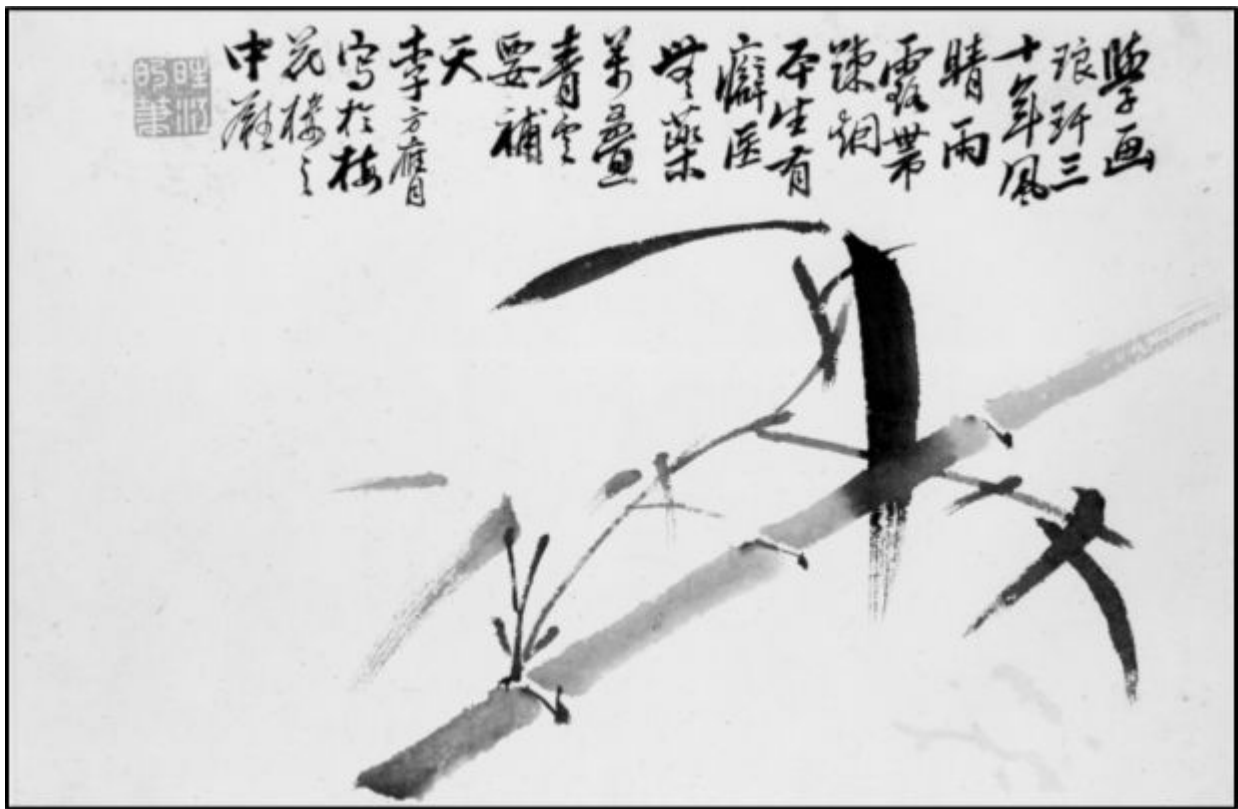 學画
琅玕三
十年風
晴雨
露帶
踈烟
平生有
癖医
無藥
萬疊
青雲
要補
天
李方膺
写於梅
花樓之
中